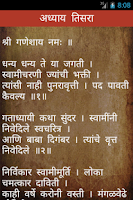 8:08
अध्याय तिसरा
श्री गणेशाय नमः ॥
धन्य धन्य ते या जगती ।
स्वामीचरणी ज्यांची भक्ती ।
त्यांसी नाही पुनरावृत्ती । पद पावती
कैवल्य ॥१॥
गताध्यायी कथा सुंदर । स्वामींनी
निवेदिले स्वचरित्र ।
आणि बाबा दिगंबर । त्यांचे वृत्त
निवेदिले ॥२॥
निर्विकार स्वामीमूर्ति । लोका
चमत्कार दाविती ।
काही वर्षे करोनी वस्ती । मंगळवेढे